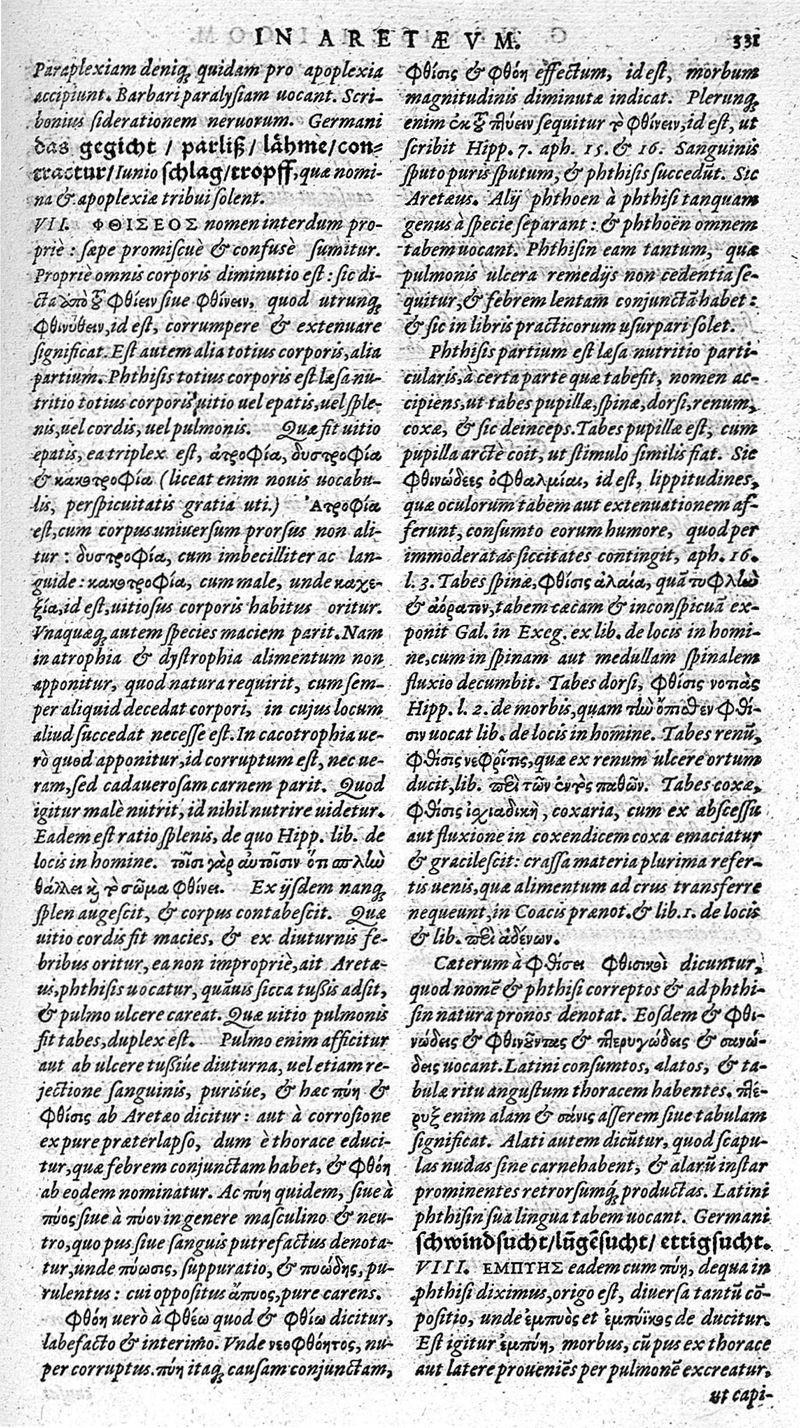 IN ARETÆVM.
331
Paraplexiam deniq; quidam pro apoplexia
accipiunt. Barbari paralysiam uocant. Scri-
bonius siderationem neruorum. Germani
das gegicht / parliß/ lähme/con-
tractur/Iunio schlag/tropff, quæ nomi-
na & apoplexiæ tribui solent.
VII. ΦΘΙΣΕΟΣ nomen interdum pro-
priè: sæpe promiscuè & confusè sumitur.
Propriè omnis corporis diminutio est: sic di-
cta ἀπὸ τοῦ φθίειν siue φθίνειν, quod utrunq;
φθινύθειν, id est, corrumpere & extenuare
significat. Est autem alia totius corporis, alia
partium. Phthisis totius corporis est læsa nu-
tritio totius corporis uitio uel epatis, uel sple-
nis, uel cordis, uel pulmonis. Quæ fit uitio
epatis, ea triplex est, ἀτροφία, δυστροφία
& κακοτροφία (liceat enim nouis uocabu-
lis, perspicuitatis gratia uti.) Ἀτροφία
est, cum corpus uniuersum prorsus non ali-
tur: δυστροφία, cum imbecilliter ac lan-
guide: κακοτροφία, cum male, unde καχε-
ξία, id est, uitiosus corporis habitus oritur.
Vnaquæq; autem species maciem parit. Nam
in atrophia & dystrophia alimentum non
apponitur, quod natura requirit, cum sem-
per aliquid decedat corpori, in cujus locum
aliud succedat necesse est. In cacotrophia ue-
rò quod apponitur, id corruptum est, nec ue-
ram, sed cadauerosam carnem parit. Quod
igitur malè nutrit, id nihil nutrire uidetur.
Eadem est ratio splenis, de quo Hipp. lib. de
locis in homine. τοῖσι γὰρ αὐτοῖσιν ὅτι σπλὴν
θάλλει κỳ τὸ σῶμα φθίνει. Ex ijsdem nanq;
splen augescit, & corpus contabescit. Quæ
uitio cordis fit macies, & ex diuturnis fe-
bribus oritur, ea non impropriè, ait Aretæ-
us, phthisis uocatur, quãuis sicca tußis adsit,
& pulmo ulcere careat. Quæ uitio pulmonis
fit tabes, duplex est. Pulmo enim afficitur
aut ab ulcere tußiúe diuturna, uel etiam re-
jectione sanguinis, purisúe, & hæc πύη &
φθίσις ab Aretæo dicitur: aut à corrosione
ex pure præterlapso, dum è thorace educi-
tur, quæ febrem conjunctam habet, & φθόη
ab eodem nominatur. Ac πύη quidem, siue à
πύος siue à πύον in genere masculino & neu-
tro, quo pus siue sanguis putrefactus denota-
tur, unde πύωσις, suppuratio, & πυώδης, pu-
rulentus: cui oppositus ἄπυος, pure carens.
Φθόη uerò à φθέω quod & φθίω dicitur,
labefacto & interimo. Vnde νεοφθόητος, nu-
per corruptus. πύη itaq; causam conjunctam,
φθίσις & φθόη effectum, id est, morbum
magnitudinis diminutæ indicat. Plerunq;
enim ἐκ τοῦ πτύειν sequitur τὸ φθίνειν, id est, ut
scribit Hipp. 7. aph. 15. & 16. Sanguinis
sputo puris sputum, & phthisis succedũt. Sic
Aretæus. Alij phthoen à phthisi tanquam
genus à specie separant: & phthoën omnem
tabem uocant. Phthisin eam tantum, quæ
pulmonis ulcera remedijs non cedentia se-
quitur, & febrem lentam conjunctã habet:
& sic in libris practicorum usurpari solet.
Phthisis partium est læsa nutritio parti-
cularis, à certa parte quæ tabefit, nomen ac-
cipiens, ut tabes pupillæ, spinæ, dorsi, renum,
coxæ, & sic deinceps. Tabes pupillæ est, cum
pupilla arctè coit, ut stimulo similis fiat. Sic
φθινώδεες ὀφθαλμίαι, id est, lippitudines,
quæ oculorum tabem aut extenuationem af-
ferunt, consumto eorum humore, quod per
immoderatas siccitates contingit, aph. 16.
l. 3. Tabes spinæ, φθίσις ἀλαία, quã τυφλὴν
& ἀόρατην, tabem cæcam & inconspicuã ex-
ponit Gal. in Exeg. ex lib. de locis in homi-
ne, cum in spinam aut medullam spinalem
fluxio decumbit. Tabes dorsi, φθίσις νοτιὰς
Hipp. l. 2. de morbis, quam τὴν ὄπισθεν φθί-
σιν uocat lib. de locis in homine. Tabes renũ,
φθίσις νεφρῖτις, quæ ex renum ulcere ortum
ducit, lib. περὶ τῶν ἐντὸς παθῶν. Tabes coxæ,
φθίσις ἰσχιαδικὴ, coxaria, cum ex abscessu
aut fluxione in coxendicem coxa emaciatur
& gracilescit: crassa materia plurima refer-
tis uenis, quæ alimentum ad crus transferre
nequeunt, in Coacis prænot. & lib. 1. de locis
& lib. περὶ ἀδένων.
Cæterum à φθίσει φθισικοὶ dicuntur,
quod nomẽ & phthisi correptos & ad phthi-
sin natura pronos denotat. Eosdem & φθι-
νώδεις & φθίνοντας & πτερυγώδεις & σανώ-
δεις uocant. Latini consumtos, alatos, & ta-
bulæ ritu angustum thoracem habentes. πτέ-
ρυξ enim alam & σάνις asserem siue tabulam
significat. Alati autem dicũtur, quod scapu-
las nudas sine carne habent, & alarũ instar
prominentes retrorsumq; productas. Latini
phthisin sua lingua tabem uocant. Germani
schwindsucht/lũgẽsucht/ ettigsucht.
VIII. ΕΜΠΥΗΣ eadem cum πύη, de qua in
phthisi diximus, origo est, diuersa tantũ cõ-
positio, unde ἐμπυὸς et ἐμπυϊκὸς deducitur.
Est igitur ἐμπύη, morbus, cũ pus ex thorace
aut latere proueniẽs per pulmonẽ excreatur,
ut capi-